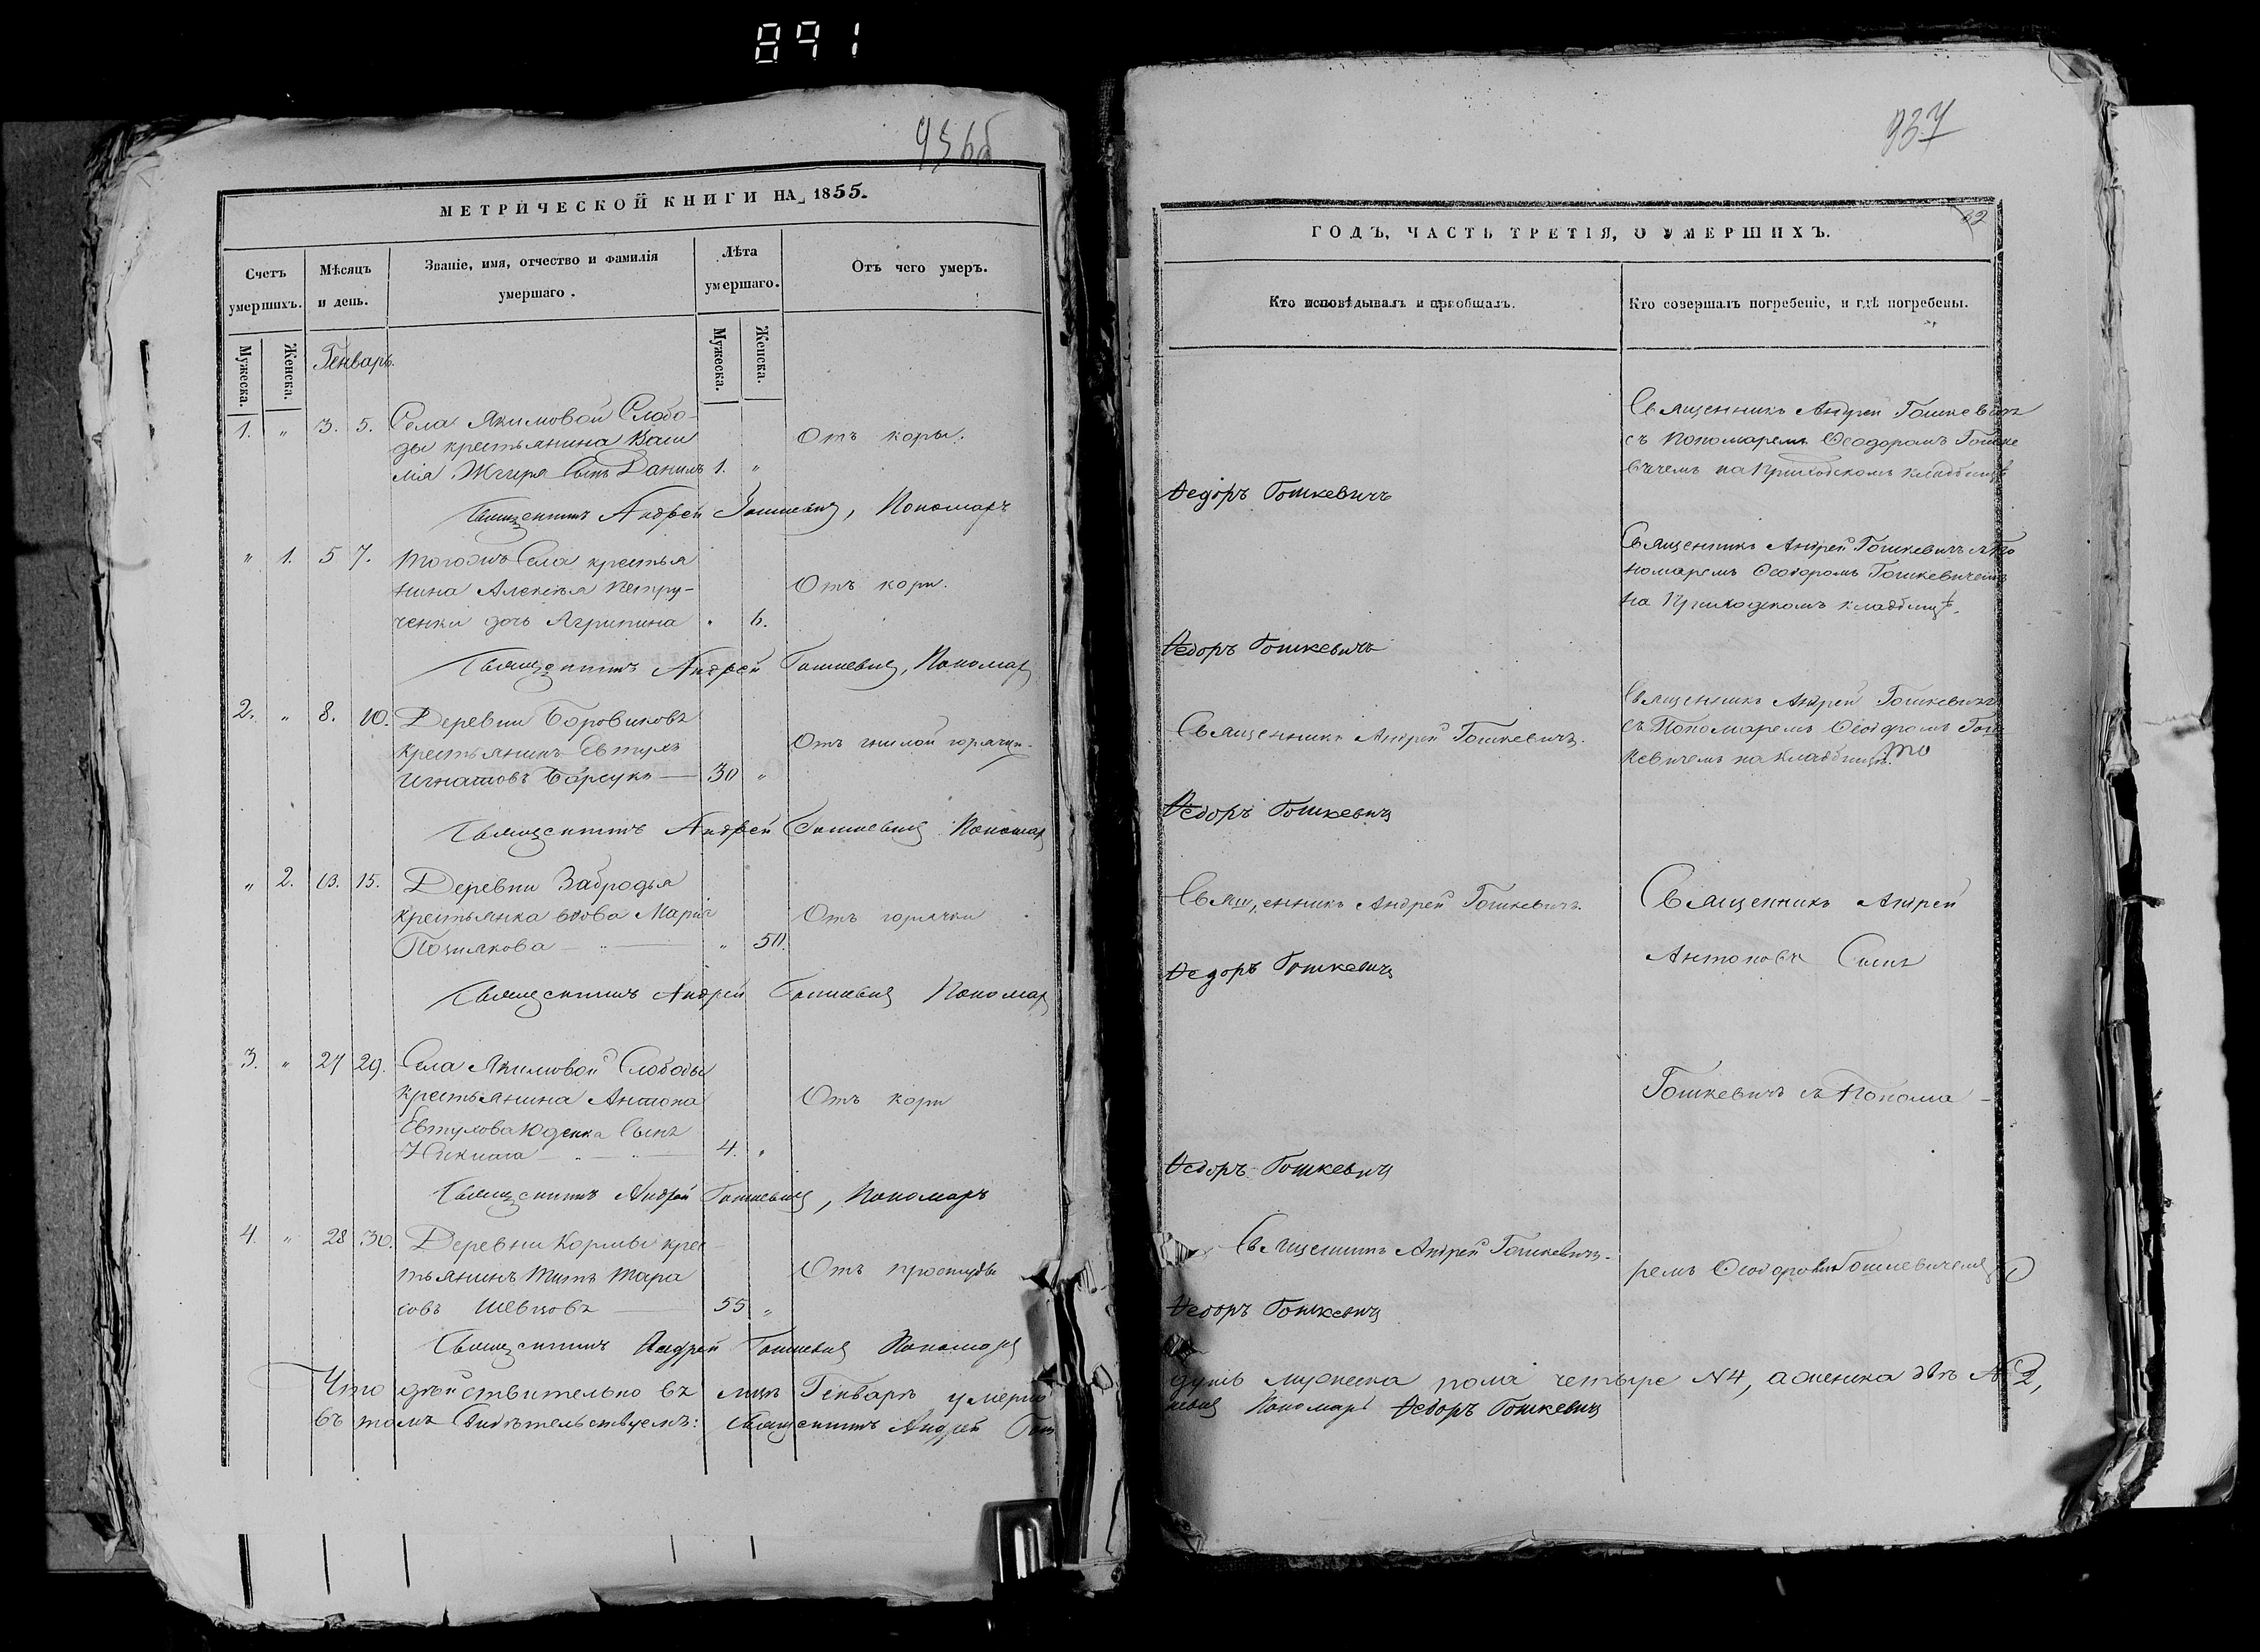 891
936б
МЕТРИЧЕСКОЙ КНИГИ НА 1855.
Счетъ умершихъ.
Мѣсяцъ и день.
Званіе, имя, отчество и фамилія умершаго.
Лѣта умершаго.
Отъ чего умеръ.
Мужеска.
Женска.
Генварь.
Мужеска.
Женска.
1. „ 3. 5. Села Якимовой Слобо-
ды крестьянина Васи
лія Жгиря Сынъ Данилъ 1. „ Отъ коры.
Священникъ Андрей Гошкевичъ, Пономарь
„ 1. 5 7. Тогожъ Села крестья
нина Алексѣя Петру-
ченки дочь Агрипина „ 6. Отъ кори.
Священникъ Андрей Гошкевичъ, Пономарь
2. „ 8. 10. Деревни Боровиковъ
крестьянинъ Евтухъ
Игнатовъ Борсукъ 30 „ Отъ гнилой горячки.
Священникъ Андрей Гошкевичъ Пономарь
„ 2. 13. 15. Деревни Забродья
крестьянка вдова Марія
50. Отъ горячки
Священникъ Андрей Гошкевичъ Пономарь
3. „ 27 29. Села Якимовой Слободы
крестьянина Антона
Евтухова Юденка Сынъ
Никита 4. „ Отъ кори
Священникъ Андрей Гошкевичъ, Пономарь
4. „ 28 30. Деревни Кормы крес-
тьянинъ Титъ Тара
совъ Шевцовъ 55 „ Отъ простуды
Священникъ Андрей Гошкевичъ Пономарь
Что дѣйствительно въ мцѣ Генварѣ умерло
въ томъ Свидѣтельствуемъ: Священникъ Андрей Гош
937
62
ГОДЪ, ЧАСТЬ ТРЕТІЯ, О УМЕРШИХЪ.
Кто исповѣдывалъ и пріобщалъ.
Кто совершалъ погребеніе, и гдѣ погребены.
Священникъ Андрей Гошкевичъ
съ Пономаремъ Ѳеодоромъ Гошке
вичемъ на Приходскомъ кладбищѣ
Ѳедоръ Гошкевичъ
Священникъ Андрей Гошкевичъ съ По
номаремъ Ѳеодоромъ Гошкевичемъ
на Приходскомъ кладбищѣ.
Ѳедоръ Гошкевичъ
Священникъ Андрей Гошкевичъ.
Священникъ Андрей Гошкевичъ
съ Пономаремъ Ѳеодоромъ Гош
кевичемъ на Кладбищѣ.
Ѳедоръ Гошкевичъ
Священникъ Андрей Гошкевичъ.
Священникъ Андрей
Антоновъ Сынъ
Ѳедоръ Гошкевичъ
Гошкевичъ съ Понома-
Ѳедоръ Гошкевичъ
Священникъ Андрей Гошкевичъ.
ремъ Ѳеодоромъ Гошкевичемъ
Ѳедоръ Гошкевичъ
душъ мужеска пола четыре №4, а женска двѣ №2,
кевичъ Пономарь Ѳедоръ Гошкевичъ